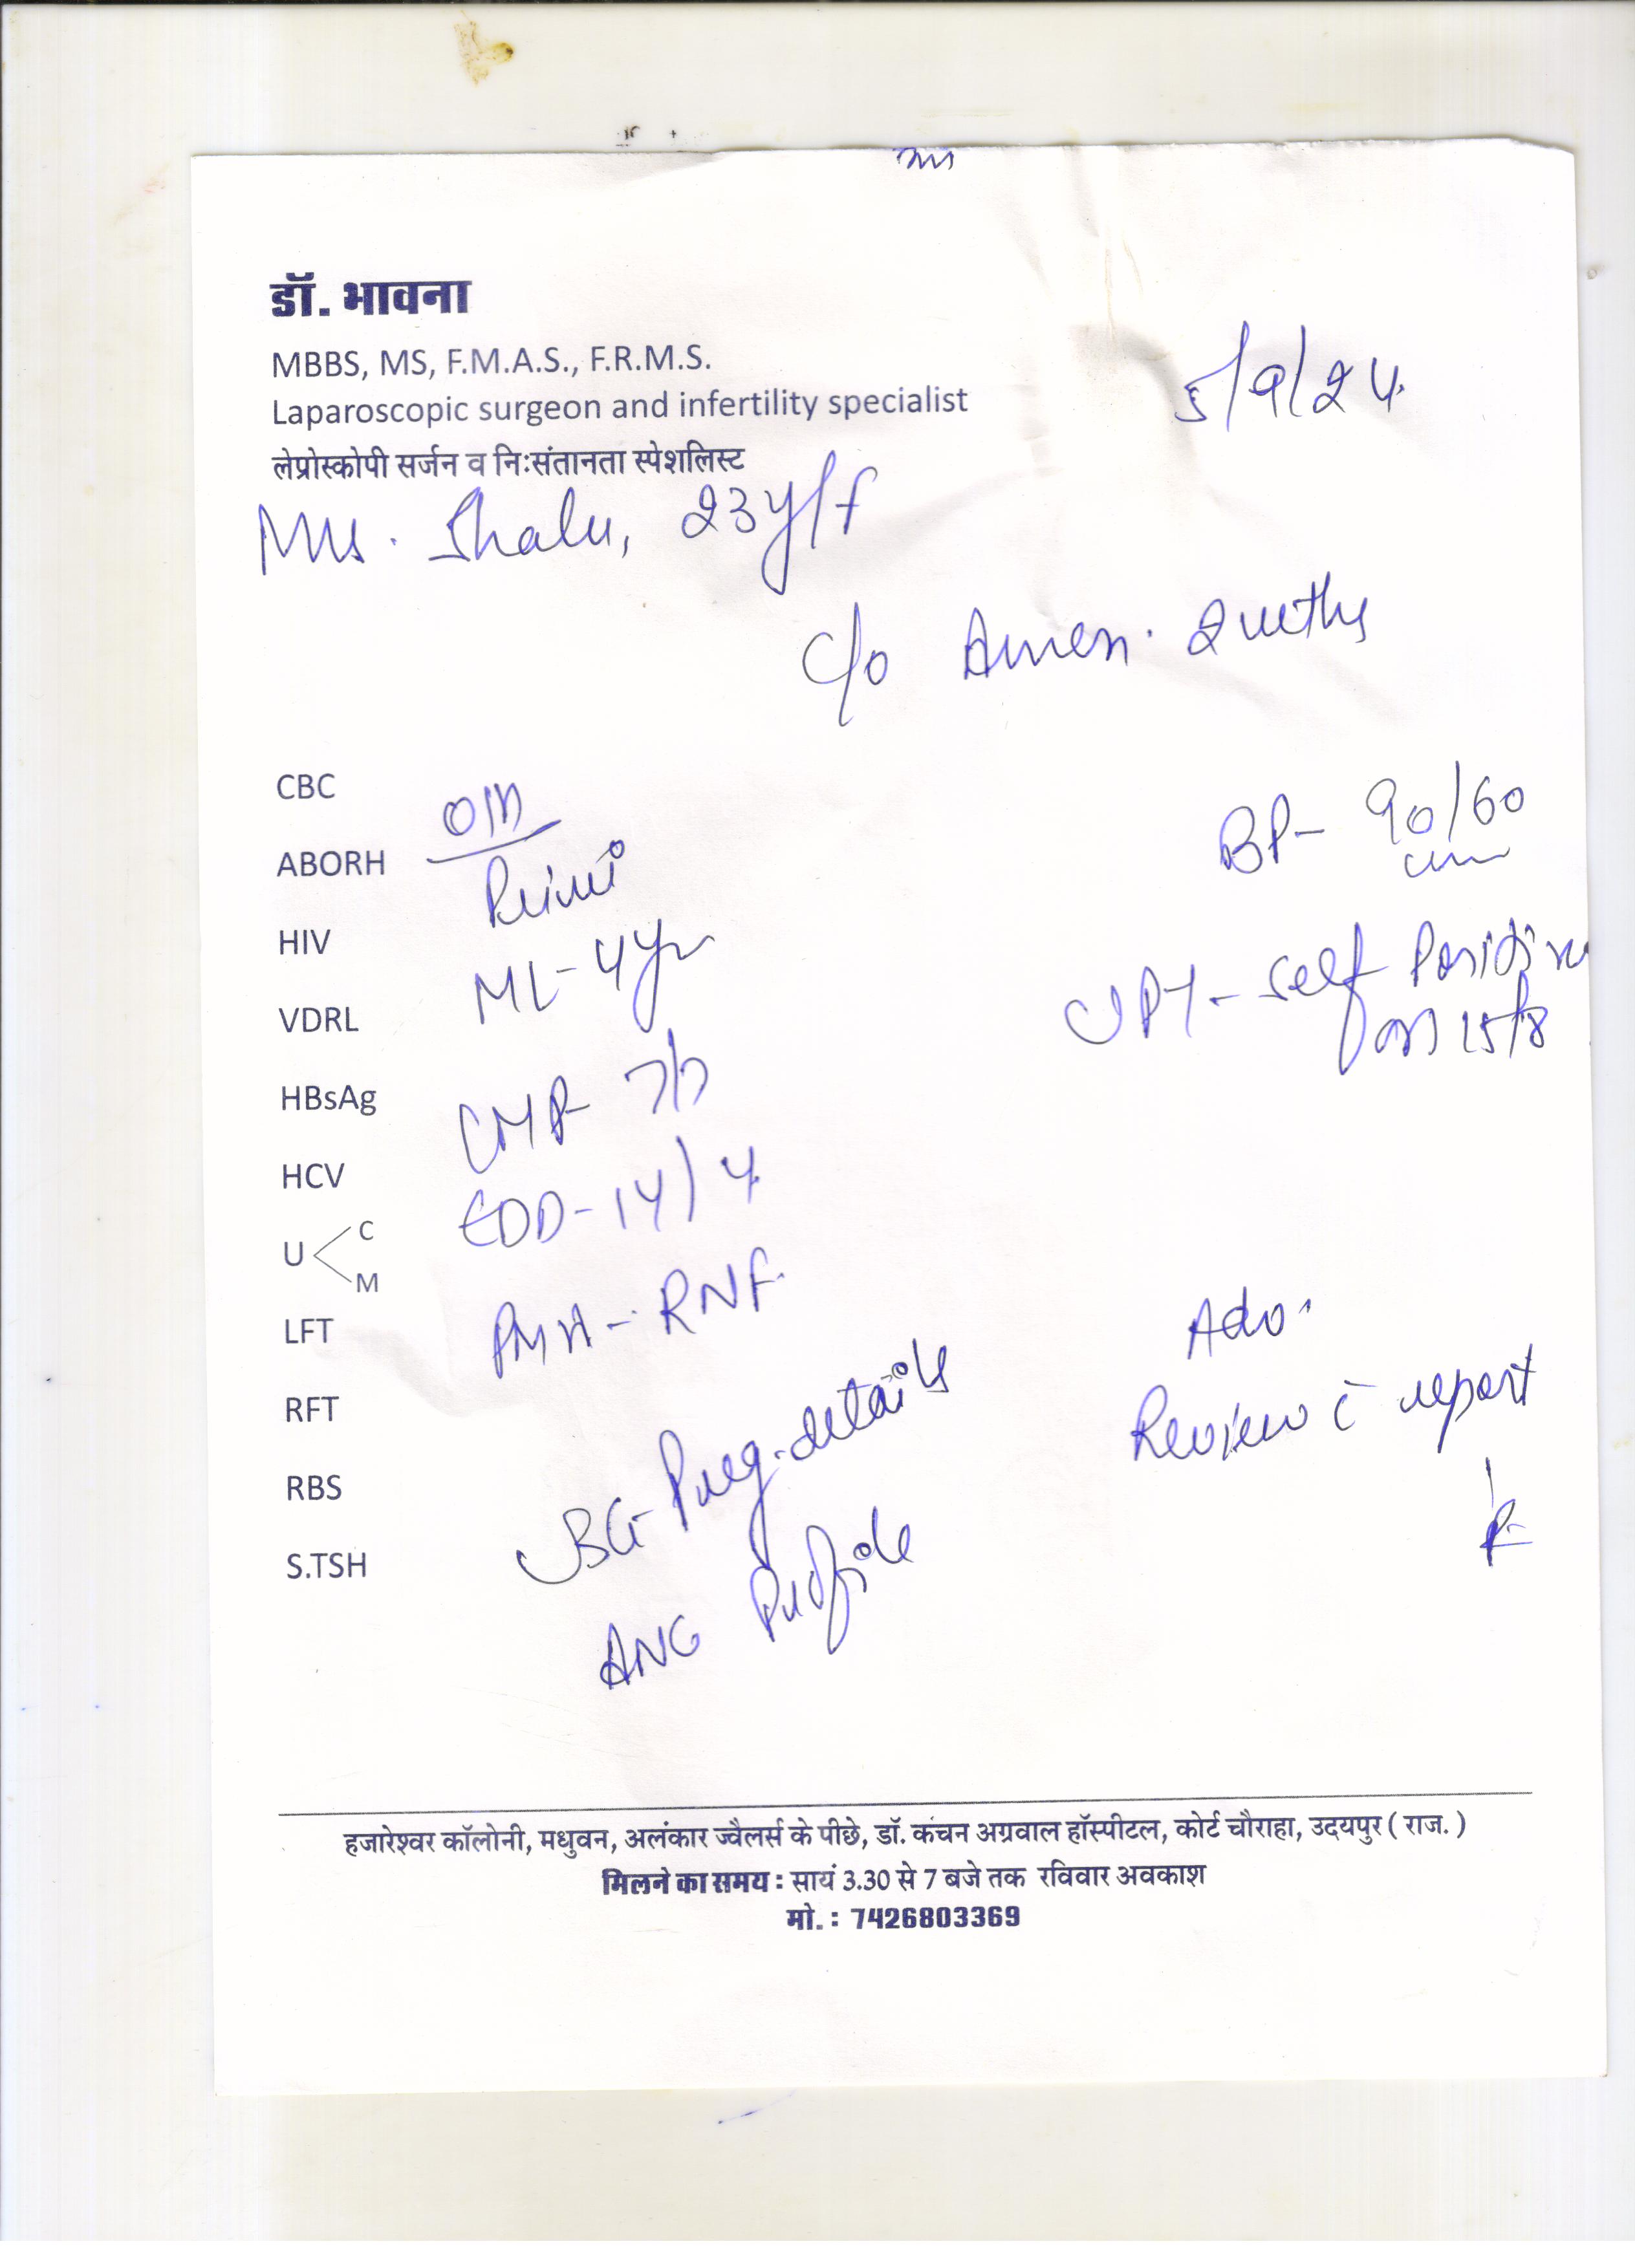 डॉ. भावना
MBBS, MS, F.M.A.S., F.R.M.S.
Laparoscopic surgeon and infertility specialist
लेप्रोस्कोपी सर्जन व निःसंतानता स्पेशलिस्ट
5/9/24
Mrs. Shalu, 23y/f
c/o Amen. 2 mths
CBC
ABORH
HIV
VDRL
HBsAg
HCV
U C M
LFT
RFT
RBS
S.TSH
O/H
Primi
ML-4yr
LMP- 7/7
EDD-14/4
PMH-RNF.
USG-Preg.details
ANC Profile
BP- 90/60
UPT-Self Positive
on 15/8
Adv.
Review c̄ report
हजारेश्वर कॉलोनी, मधुवन, अलंकार ज्वैलर्स के पीछे, डॉ. कंचन अग्रवाल हॉस्पीटल, कोर्ट चौराहा, उदयपुर ( राज. )
मिलने का समय : सायं 3.30 से 7 बजे तक रविवार अवकाश
मो. : 7426803369